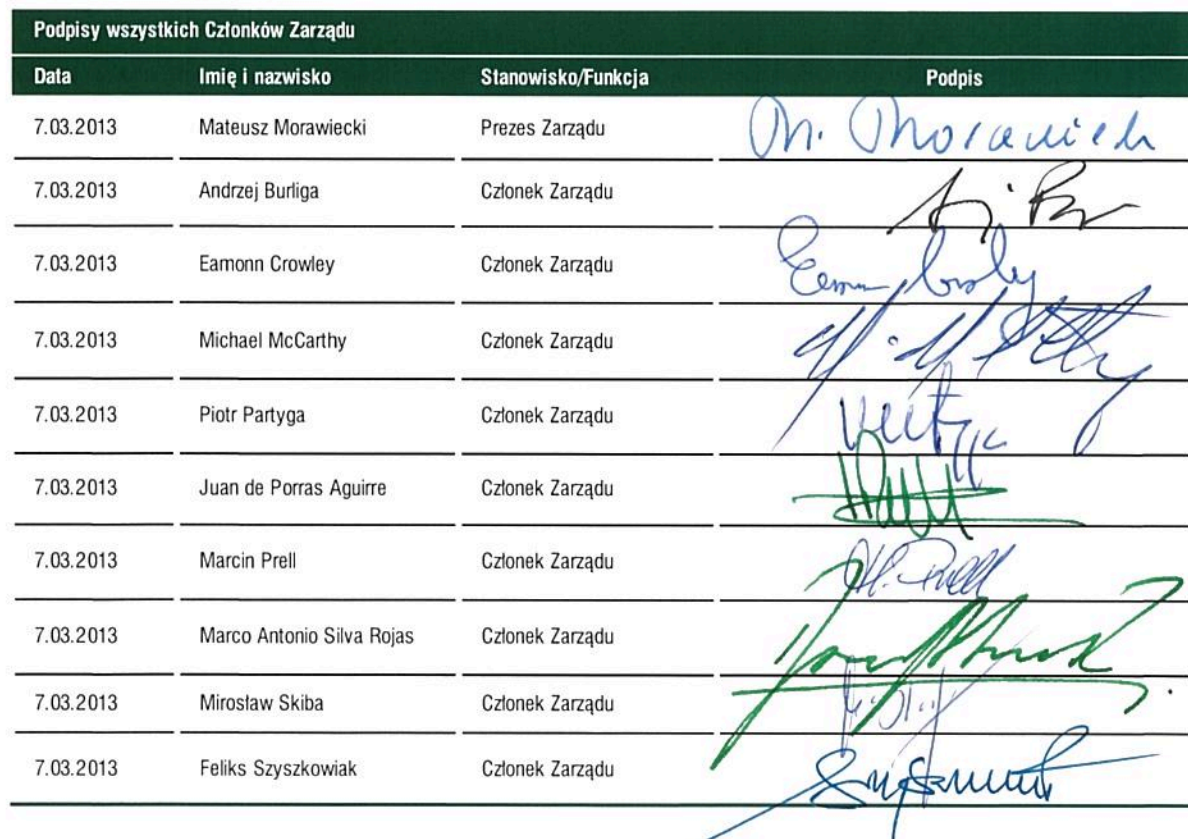 Podpisy wszystkich Członków Zarządu
Data Imię i nazwisko Stanowisko/Funkcja Podpis
7.03.2013 Mateusz Morawiecki Prezes Zarządu M. Morawiecki
7.03.2013 Andrzej Burliga Członek Zarządu
7.03.2013 Eamonn Crowley Członek Zarządu
7.03.2013 Michael McCarthy Członek Zarządu
7.03.2013 Piotr Partyga Członek Zarządu
7.03.2013 Juan de Porras Aguirre Członek Zarządu
7.03.2013 Marcin Prell Członek Zarządu M. Prell
7.03.2013 Marco Antonio Silva Rojas Członek Zarządu
7.03.2013 Mirosław Skiba Członek Zarządu
7.03.2013 Feliks Szyszkowiak Członek Zarządu